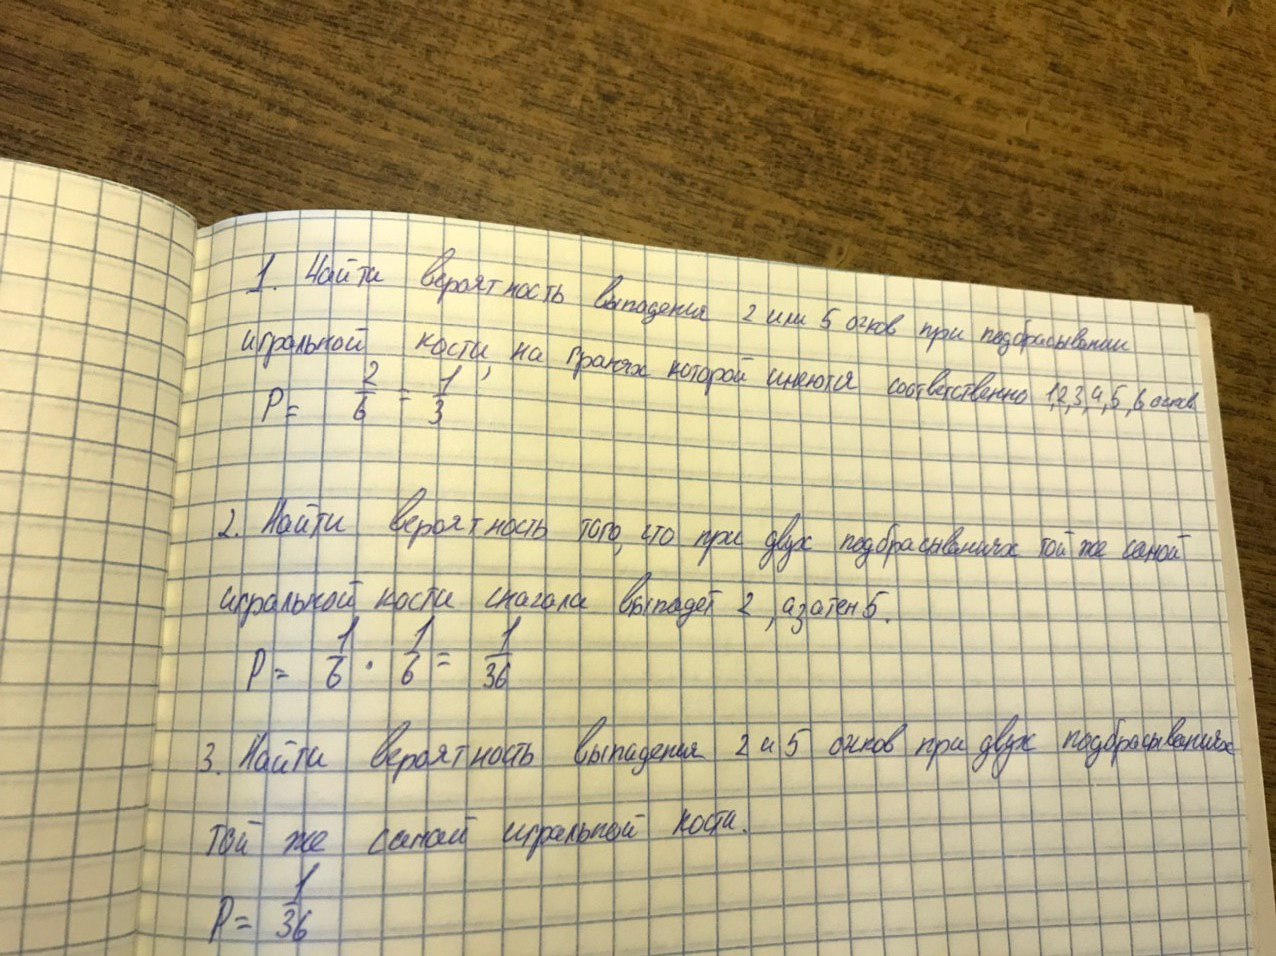 1. Найти вероятность выпадения 2 или 5 очков при подбрасывании
игральной кости, на гранях которой имеются соответственно 1,2,3,4,5,6 очков
P = 2/6 = 1/3
2. Найти вероятность того, что при двух подбрасываниях той же самой
игральной кости сначала выпадет 2, а затем 5.
P = 1/6 · 1/6 = 1/36
3. Найти вероятность выпадения 2 и 5 очков при двух подбрасываниях
той же самой игральной кости.
P = 1/36